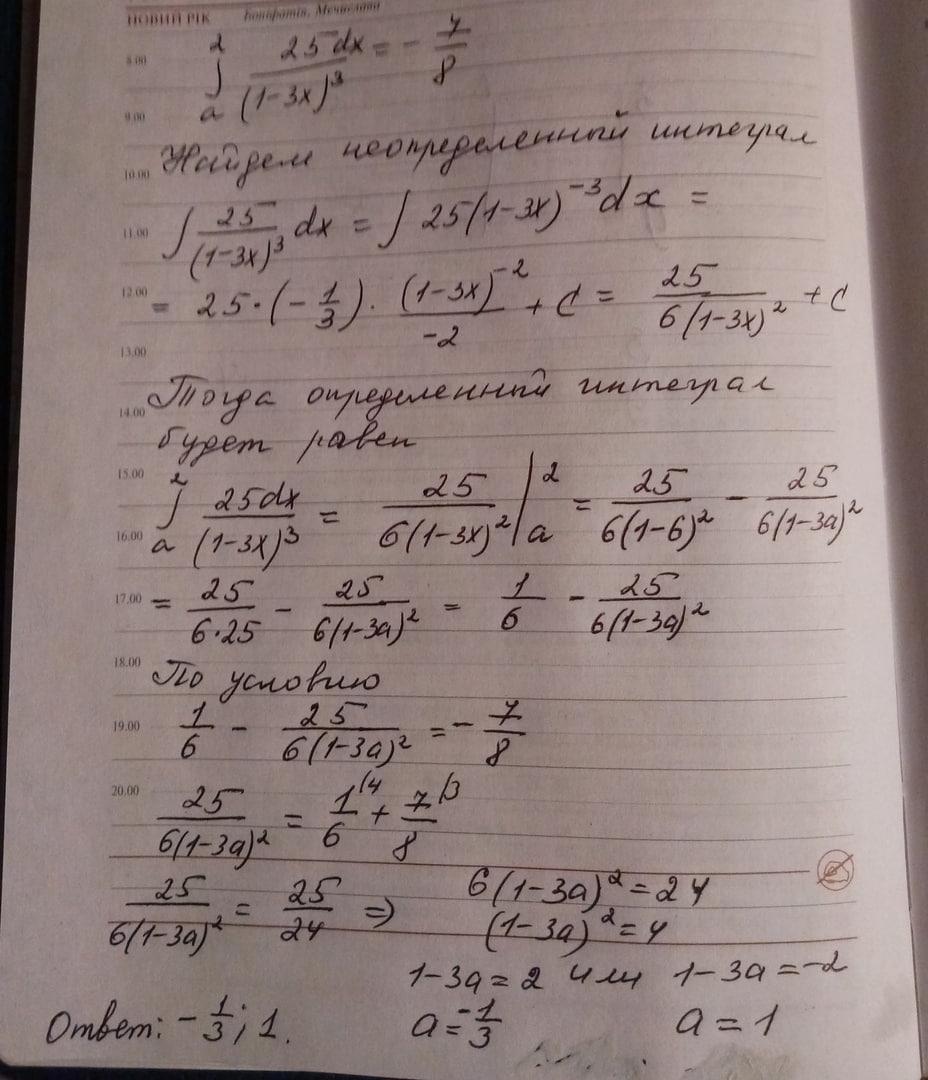 НОВИЙ РІК Боніфатія, Мечислава
8.00 ∫ₐ² 25dx/(1-3x)³ = -7/8
9.00
Найдем неопределенный интеграл
10.00
11.00 ∫ 25/(1-3x)³ dx = ∫ 25(1-3x)⁻³dx =
12.00 = 25·(-1/3)·(1-3x)⁻²/-2 + C = 25/6(1-3x)² + C
13.00
Тогда определенный интеграл
14.00
будет равен
15.00
16.00 ∫ₐ² 25dx/(1-3x)³ = 25/6(1-3x)² |ₐ² = 25/6(1-6)² - 25/6(1-3a)²
17.00 = 25/6·25 - 25/6(1-3a)² = 1/6 - 25/6(1-3a)²
18.00 По условию
19.00 1/6 - 25/6(1-3a)² = -7/8
20.00 25/6(1-3a)² = 1/6 ⁽⁴ + 7/8 ⁽³
25/6(1-3a)² = 25/24 ⇒ 6(1-3a)² = 24
(1-3a)² = 4
1-3a = 2 или 1-3a = -2
Ответ: -1/3; 1. a = -1/3 a = 1